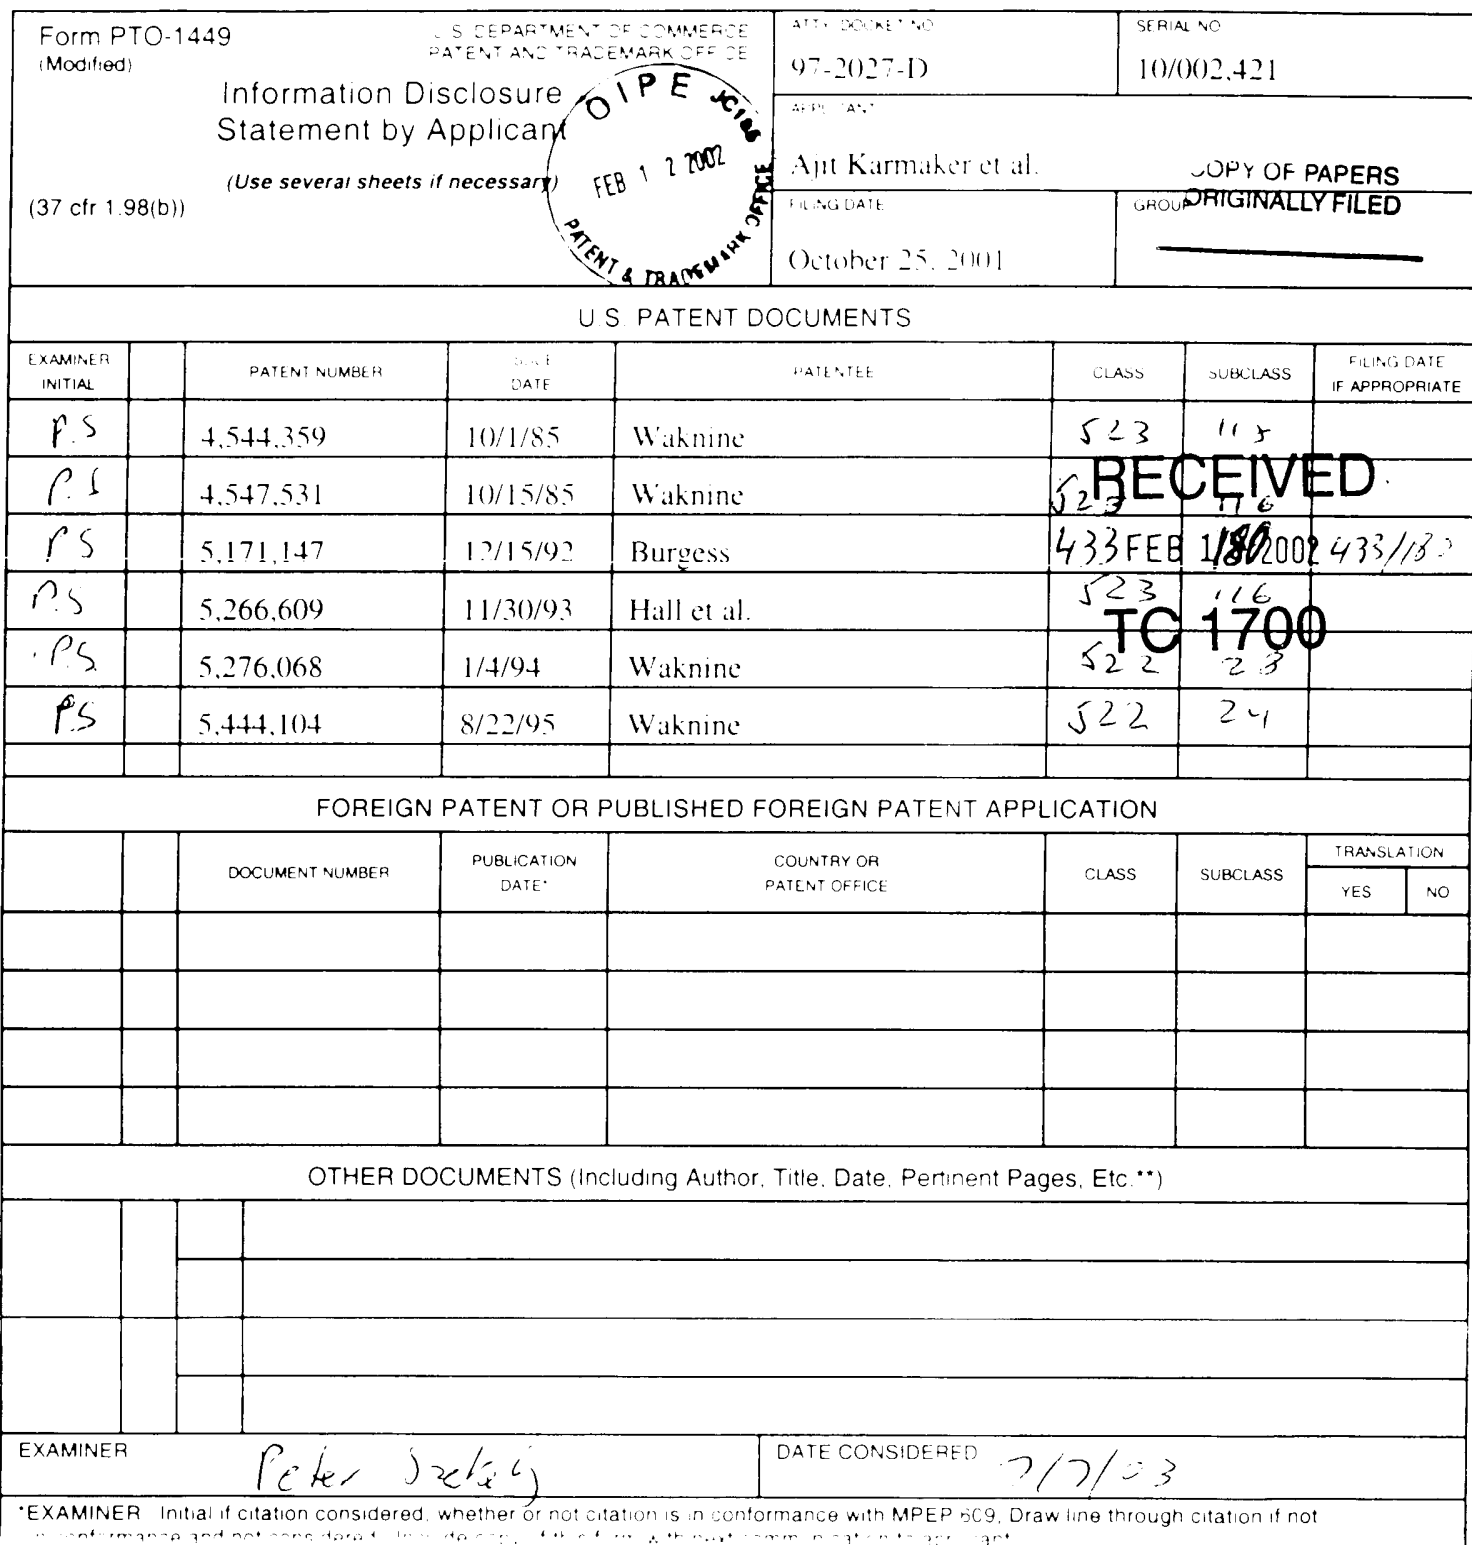 Form PTO-1449
(Modified)
U.S. DEPARTMENT OF COMMERCE
PATENT AND TRADEMARK OFFICE
Information Disclosure
Statement by Applicant
(Use several sheets if necessary)
(37 cfr 1.98(b))
OIPE JC186
FEB 12 2002
PATENT & TRADEMARK OFFICE
ATTY. DOCKET NO.
97-2027-D
SERIAL NO
10/002,421
APPLICANT
Ajit Karmaker et al.
COPY OF PAPERS
ORIGINALLY FILED
FILING DATE
October 25, 2001
GROUP
U.S. PATENT DOCUMENTS
EXAMINER INITIAL PATENT NUMBER ISSUE DATE PATENTEE CLASS SUBCLASS FILING DATE IF APPROPRIATE
P.S 4,544,359 10/1/85 Waknine 523 115
P.S 4,547,531 10/15/85 Waknine 523 116
RECEIVED
PS 5,171,147 12/15/92 Burgess 433 180 433/180
FEB 2002
P.S 5,266,609 11/30/93 Hall et al. 523 116
TC 1700
P.S. 5,276,068 1/4/94 Waknine 522 28
P.S 5,444,104 8/22/95 Waknine 522 24
FOREIGN PATENT OR PUBLISHED FOREIGN PATENT APPLICATION
DOCUMENT NUMBER PUBLICATION DATE* COUNTRY OR PATENT OFFICE CLASS SUBCLASS TRANSLATION YES NO
OTHER DOCUMENTS (Including Author, Title, Date, Pertinent Pages, Etc.**)
EXAMINER Peter Szekely
DATE CONSIDERED 7/7/03
*EXAMINER Initial if citation considered, whether or not citation is in conformance with MPEP 609, Draw line through citation if not
in conformance and not considered. Include copy of this form with next communication to applicant